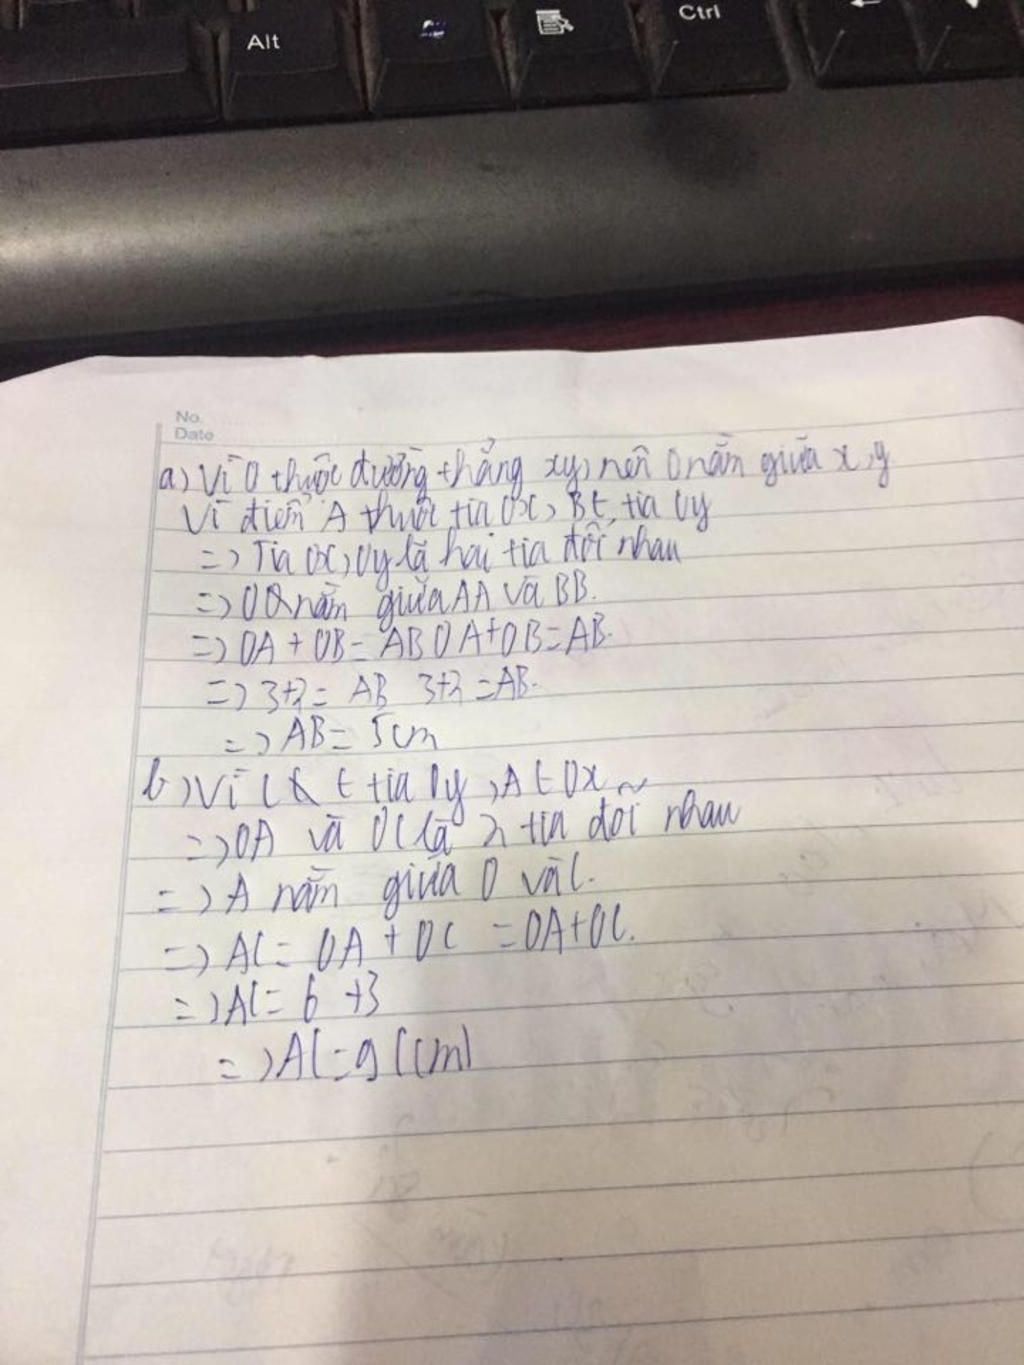 Alt
Ctrl
No.
Date
a) Vì O thuộc đường thẳng xy, nên O nằm giữa x, y
Vì điểm A thuộc tia Ox, B ∈ tia Oy
=> Tia Ox, Oy là hai tia đối nhau
=> O nằm giữa AA và BB.
=> OA + OB = AB OA + OB = AB.
=> 3+2 = AB 3+2 = AB.
=> AB = 5cm
b) Vì C ∈ tia Oy, A ∈ Ox
=> OA và OC là 2 tia đối nhau
=> A nằm giữa O và C.
=> AC = OA + OC = OA + OC.
=> AC = 6 + 3
=> AC = 9 (cm)